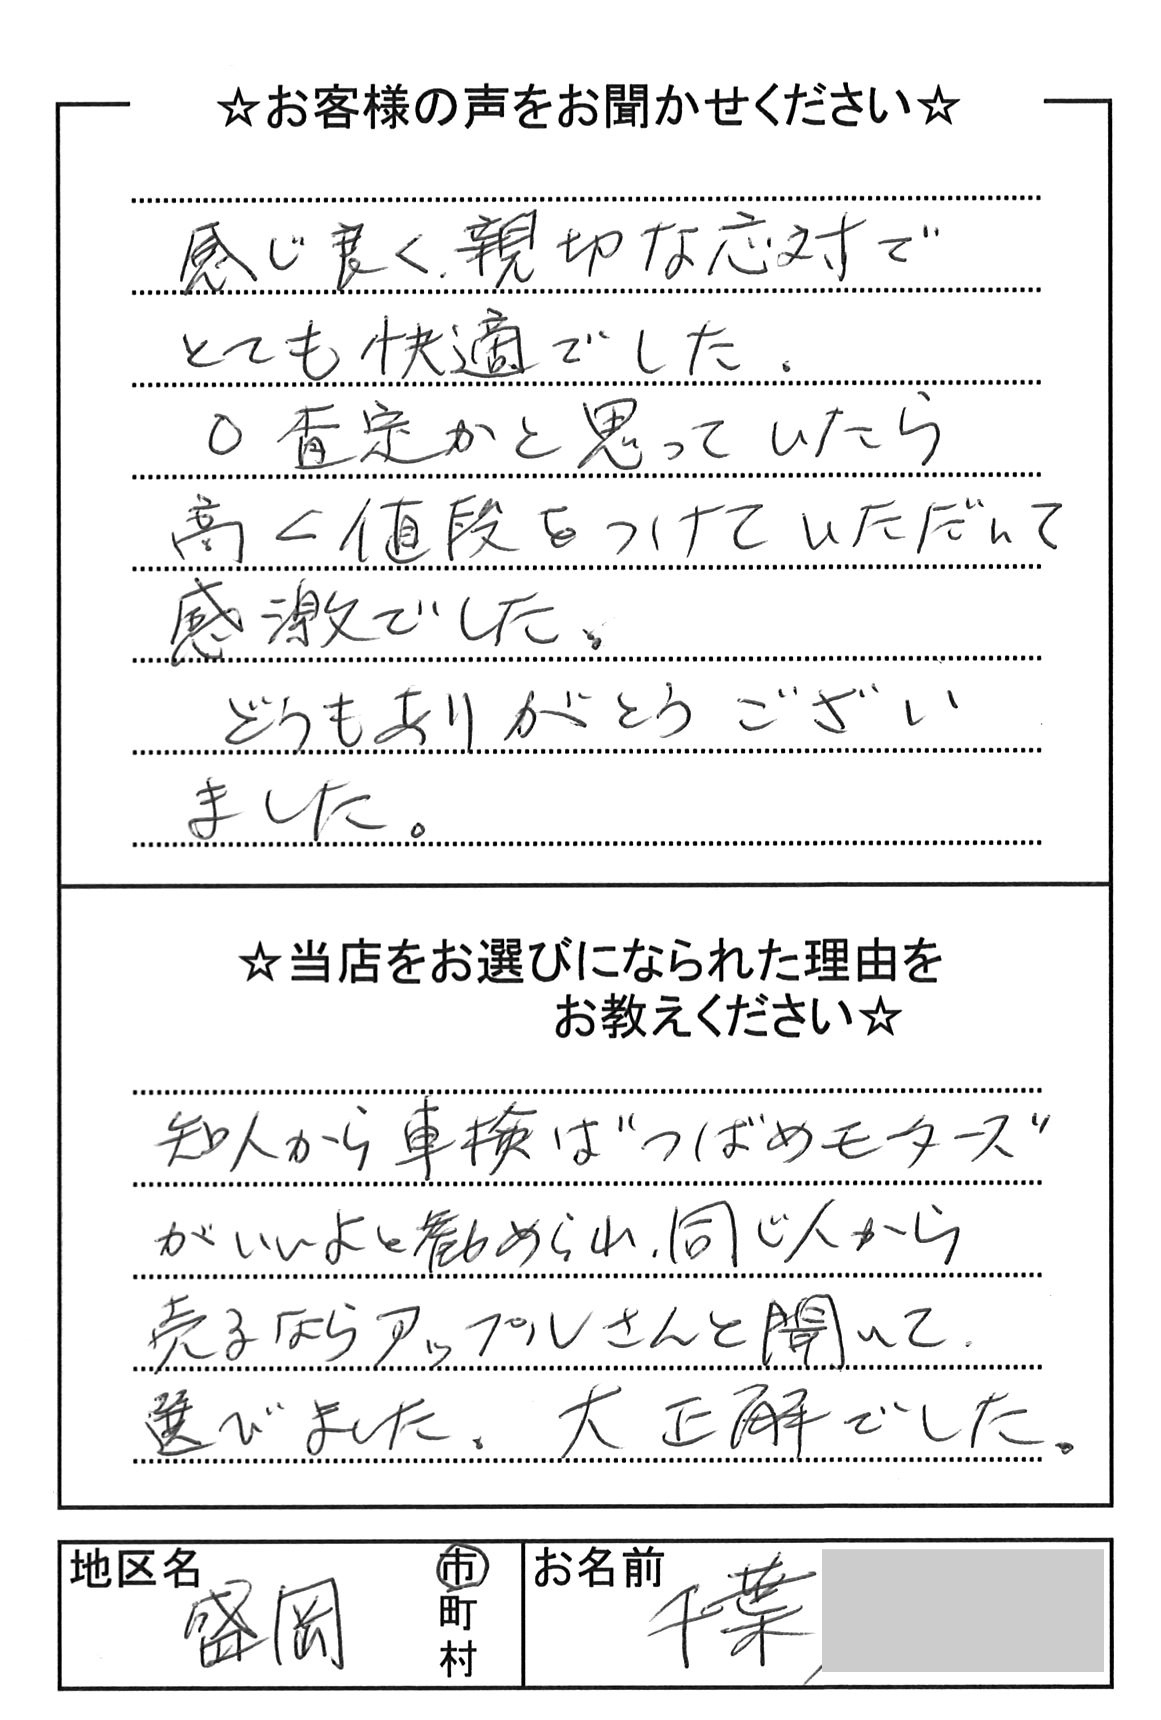 ☆お客様の声をお聞かせください☆
感じ良く、親切な応対で
とても快適でした.
0査定かと思っていたら
高く値段をつけていただいて
感激でした。
どうもありがとうござい
ました。
☆当店をお選びになられた理由を
お教えください☆
知人から車検は"つばめモータース"
がいいよと勧められ、同じ人から
売るならアップルさんと聞いて、
選びました. 大正解でした。
地区名 盛岡 市
町
村
お名前 千葉